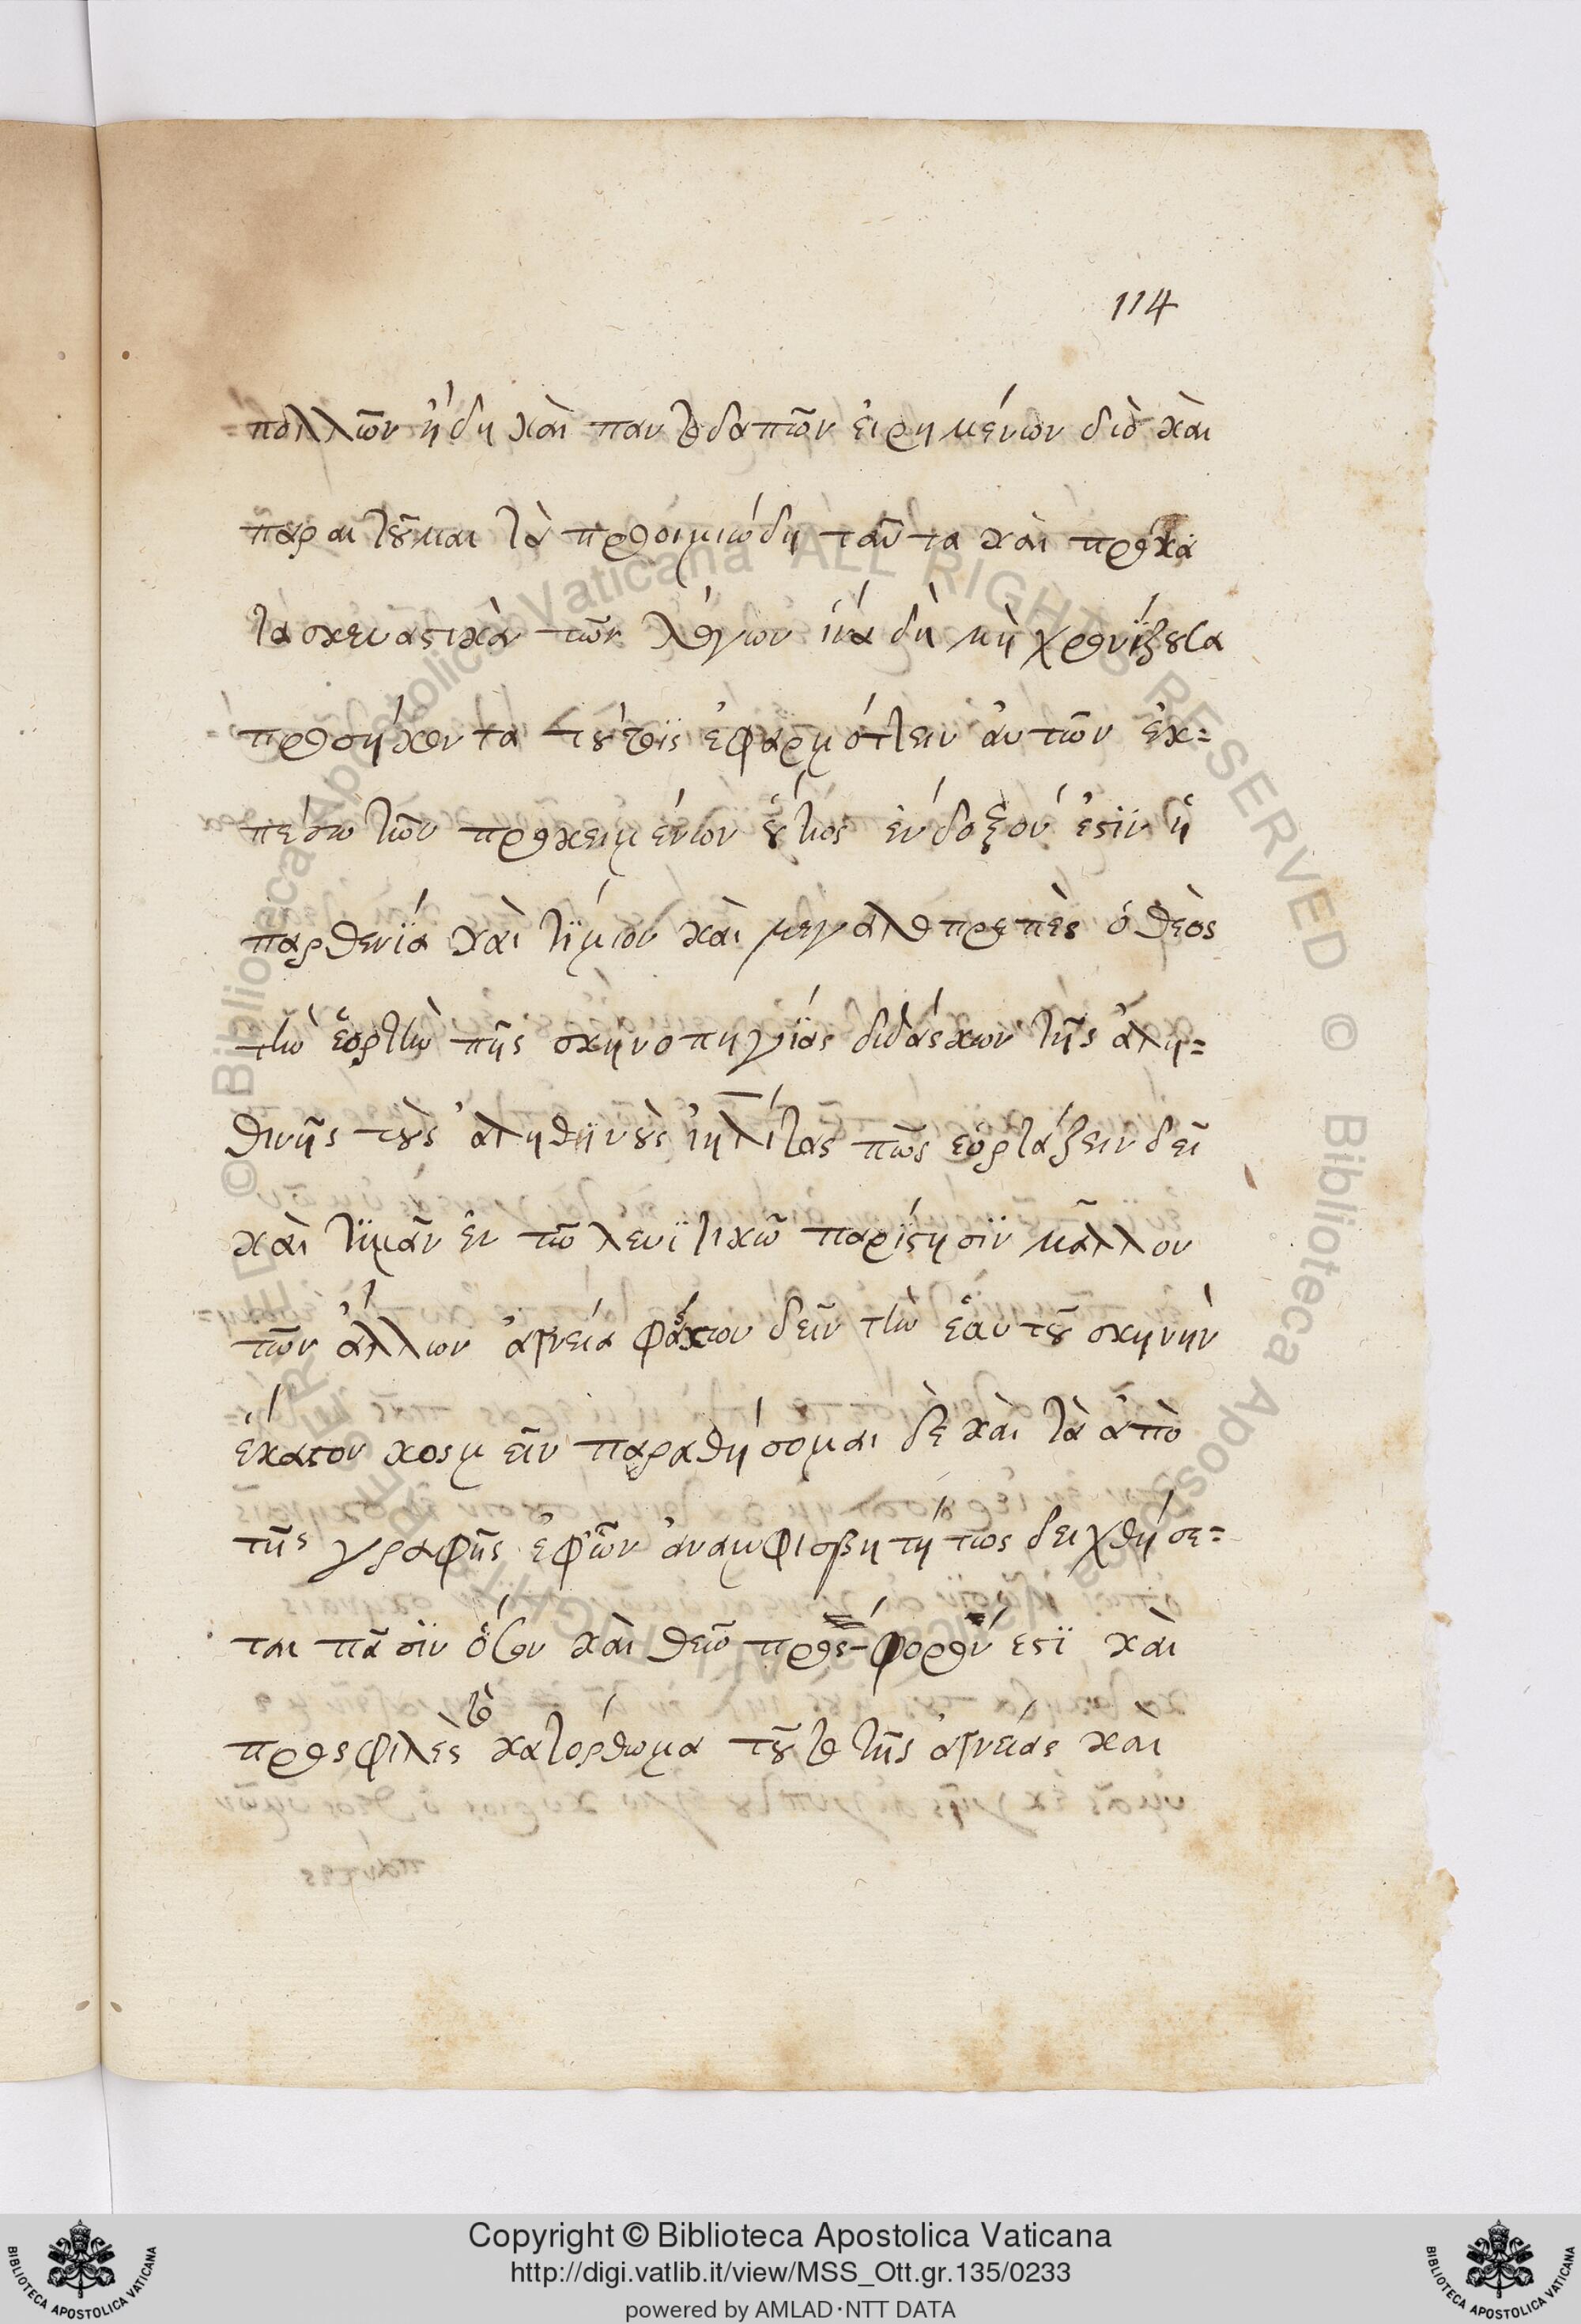 114
πολλῶν ἤδη καὶ παντοδαπῶν εἰρημένων διὸ καὶ
παραιτοῦμαι τὰ προοιμιώδη ταῦτα καὶ προκα
τασκευαστικὰ τῶν λόγων ἵνα δὴ μὴ χρονίζουσα
προσήκοντα τούτοις ἐφαρμόττειν αὐτῶν ἐκ=
πέσω τῶν προκειμένων οὕτως ἔνδοξον ἐστὶν ἡ
παρθενία καὶ τίμιον καὶ μεγαλοπρεπὲς ὁ θεὸς
τὴν ἑορτὴν τῆς σκηνοπηγίας διδάσκων τῆς ἀλη=
θινῆς τοὺς ἀληθινοὺς ἰηλίτας πῶς ἑορτάζειν δεῖ
καὶ τιμᾶν ἐν τῶ λευϊτικῶ παρίστησιν μᾶλλον
τῶν ἄλλων ἁγνεία φάσκων δεῖν τὴν ἑαυτοῦ σκηνὴν
ἕκαστον κοσμεῖν παραθήσομαι δὲ καὶ τὰ ἀπὸ
τῆς γραφῆς ἐφῶν ἀναμφισβητήτως δειχθήσε=
ται πᾶσιν ὅσον καὶ θεῶ πρόσφορόν ἐστι καὶ
προσφιλὲς τὸ κατόρθωμα τοῦτο τῆς ἁγνείας καὶ
© Biblioteca Apostolica Vaticana ALL RIGHTS RESERVED
Copyright © Biblioteca Apostolica Vaticana
http://digi.vatlib.it/view/MSS_Ott.gr.135/0233
powered by AMLAD·NTT DATA
BIBLIOTECA APOSTOLICA VATICANA
BIBLIOTECA APOSTOLICA VATICANA